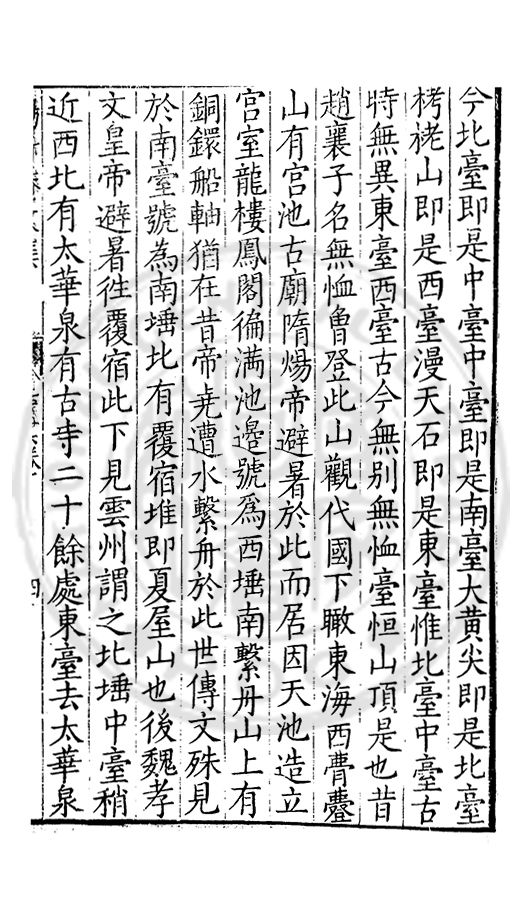 今北臺即是中臺中臺即是南臺大黃尖即是北臺
栲栳山即是西臺漫天石即是東臺惟北臺中臺古
時無異東臺西臺古今無别無恤臺恒山頂是也昔
趙襄子名無恤曾登此山觀代國下瞰東海西瞢
山有宫池古廟隋煬帝避暑於此而居因天池造立
宫室龍樓鳳閣徧满池邊號爲西埵南繫舟山上有
銅鐶船軸猶在昔帝尭遭水繫舟於此世傳文殊見
於南臺號為南埵北有覆宿堆即夏屋山也後魏孝
文皇帝避暑徃覆宿此下見雲州謂之北埵中臺稍
近西北有太華泉有古寺二十餘處東臺去太華泉
四